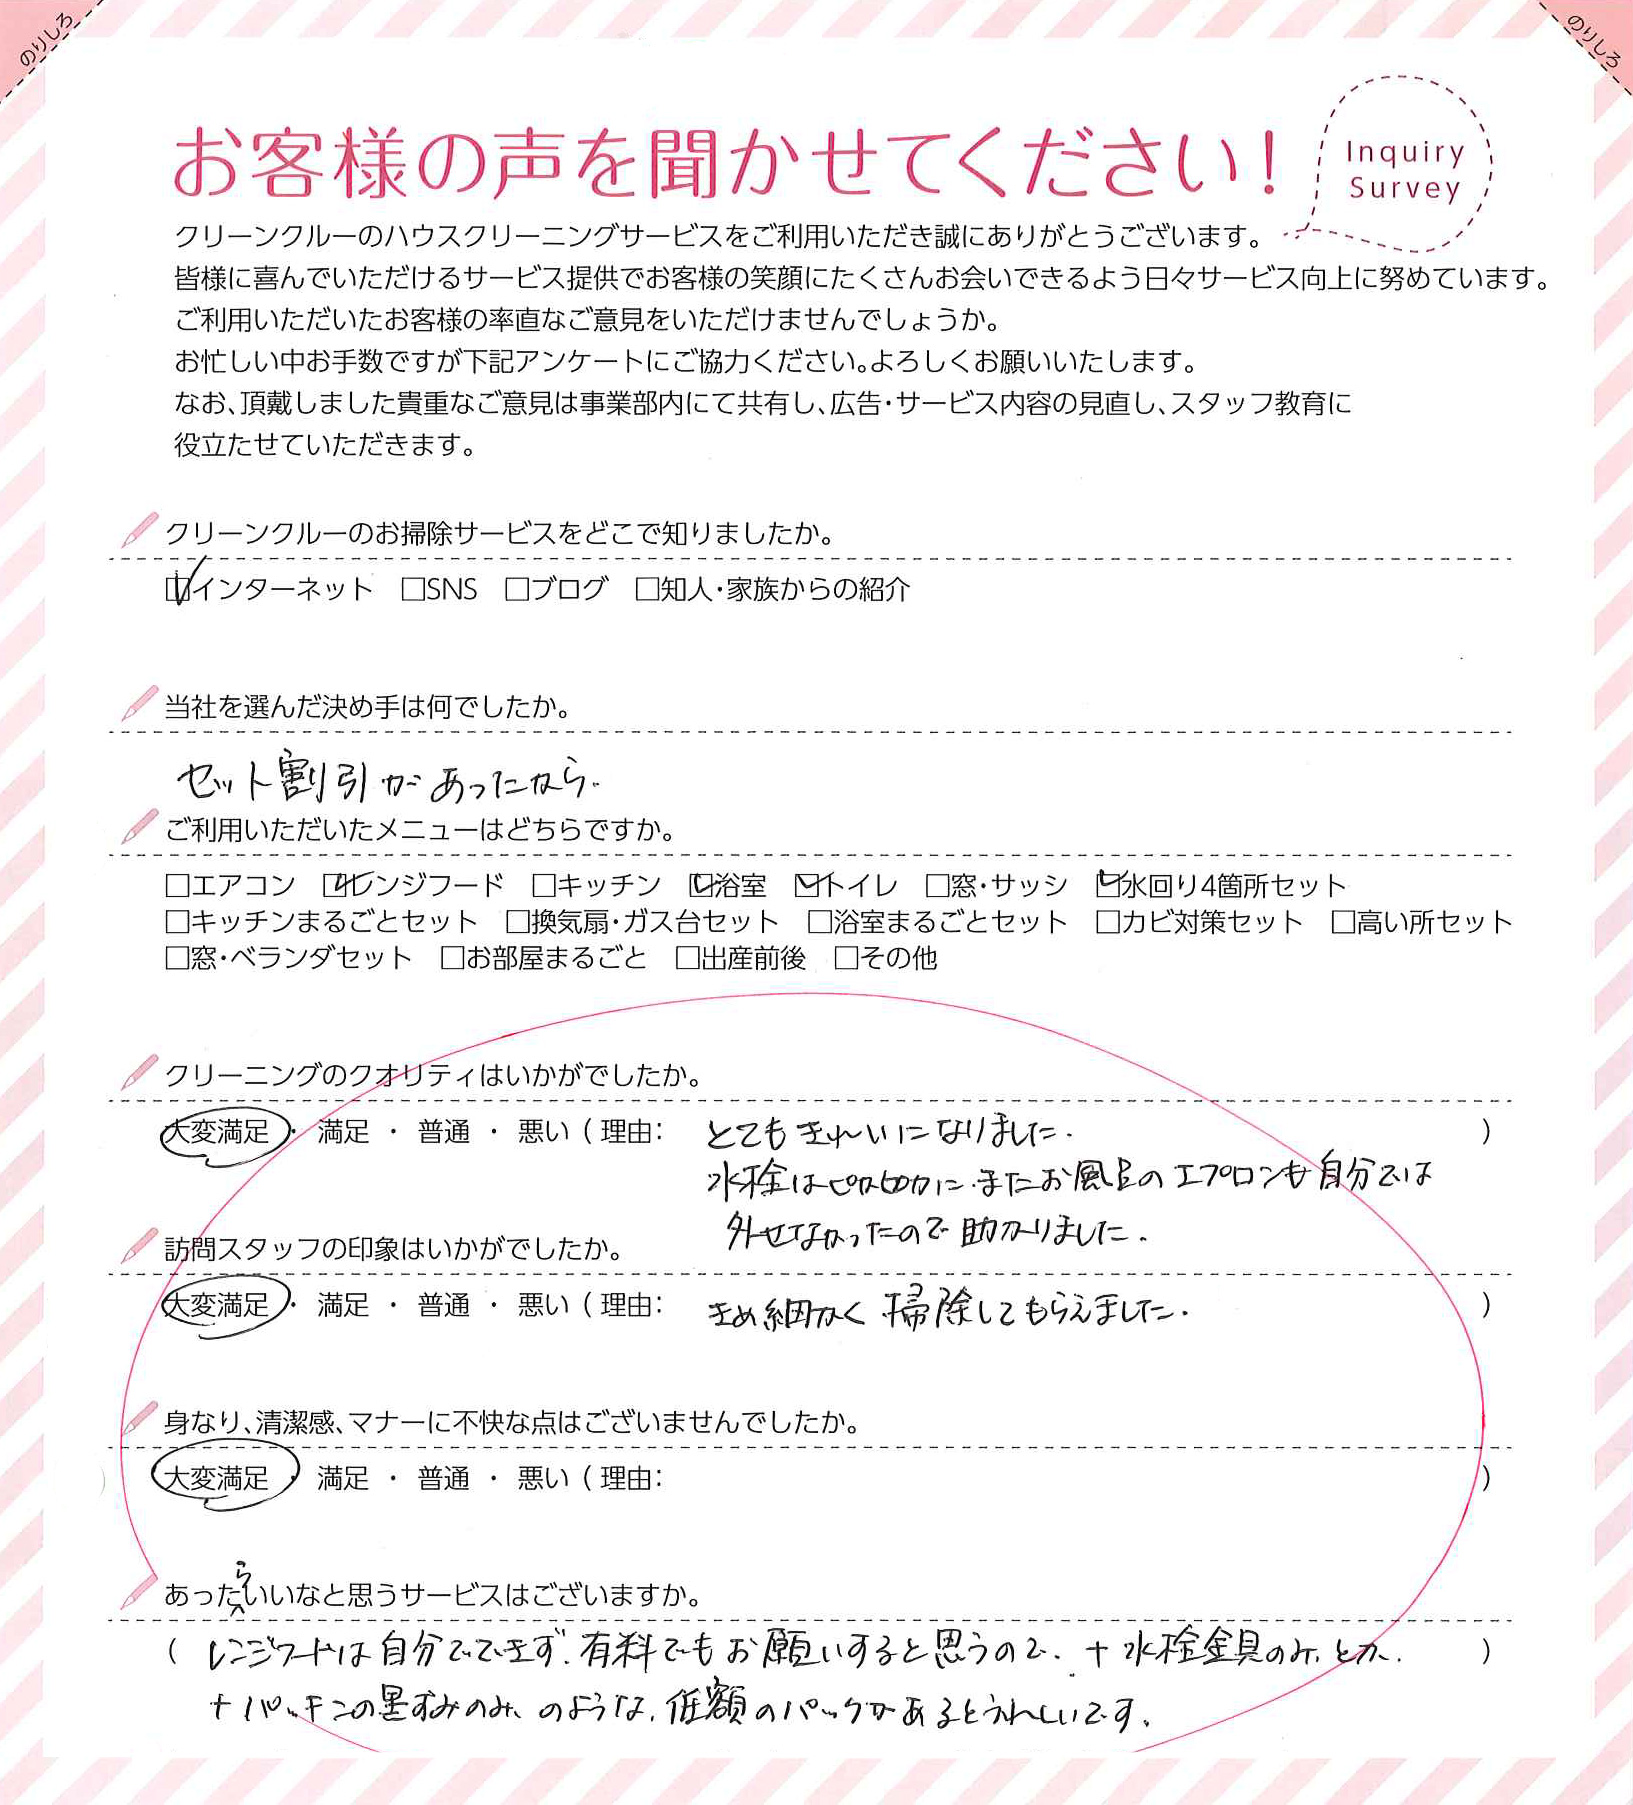 のりしろ
のりしろ
お客様の声を聞かせてください!
Inquiry
Survey
クリーンクルーのハウスクリーニングサービスをご利用いただき誠にありがとうございます。
皆様に喜んでいただけるサービス提供でお客様の笑顔にたくさんお会いできるよう日々サービス向上に努めています。
ご利用いただいたお客様の率直なご意見をいただけませんでしょうか。
お忙しい中お手数ですが下記アンケートにご協力ください。よろしくお願いいたします。
なお、頂戴しました貴重なご意見は事業部内にて共有し、広告・サービス内容の見直し、スタッフ教育に
役立たせていただきます。
クリーンクルーのお掃除サービスをどこで知りましたか。
☑インターネット □SNS □ブログ □知人・家族からの紹介
当社を選んだ決め手は何でしたか。
セット割引があったから.
ご利用いただいたメニューはどちらですか。
□エアコン ☑レンジフード □キッチン ☑浴室 ☑トイレ □窓・サッシ ☑水回り4箇所セット
□キッチンまるごとセット □換気扇・ガス台セット □浴室まるごとセット □カビ対策セット □高い所セット
□窓・ベランダセット □お部屋まるごと □出産前後 □その他
クリーニングのクオリティはいかがでしたか。
大変満足 ・ 満足 ・ 普通 ・ 悪い ( 理由: とてもきれいになりました. )
水栓はピカピカに.またお風呂のエプロンも自分では
外せなかったので助かりました.
訪問スタッフの印象はいかがでしたか。
大変満足 ・ 満足 ・ 普通 ・ 悪い ( 理由: きめ細かく掃除してもらえました. )
身なり、清潔感、マナーに不快な点はございませんでしたか。
大変満足 ・ 満足 ・ 普通 ・ 悪い ( 理由: )
あったらいいなと思うサービスはございますか。
( レンジフードは自分でできず.有料でもお願いすると思うので.+水栓金具のみ.とか. )
+パッキンの黒ずみのみ、のような.低額のパックがあるとうれしいです.